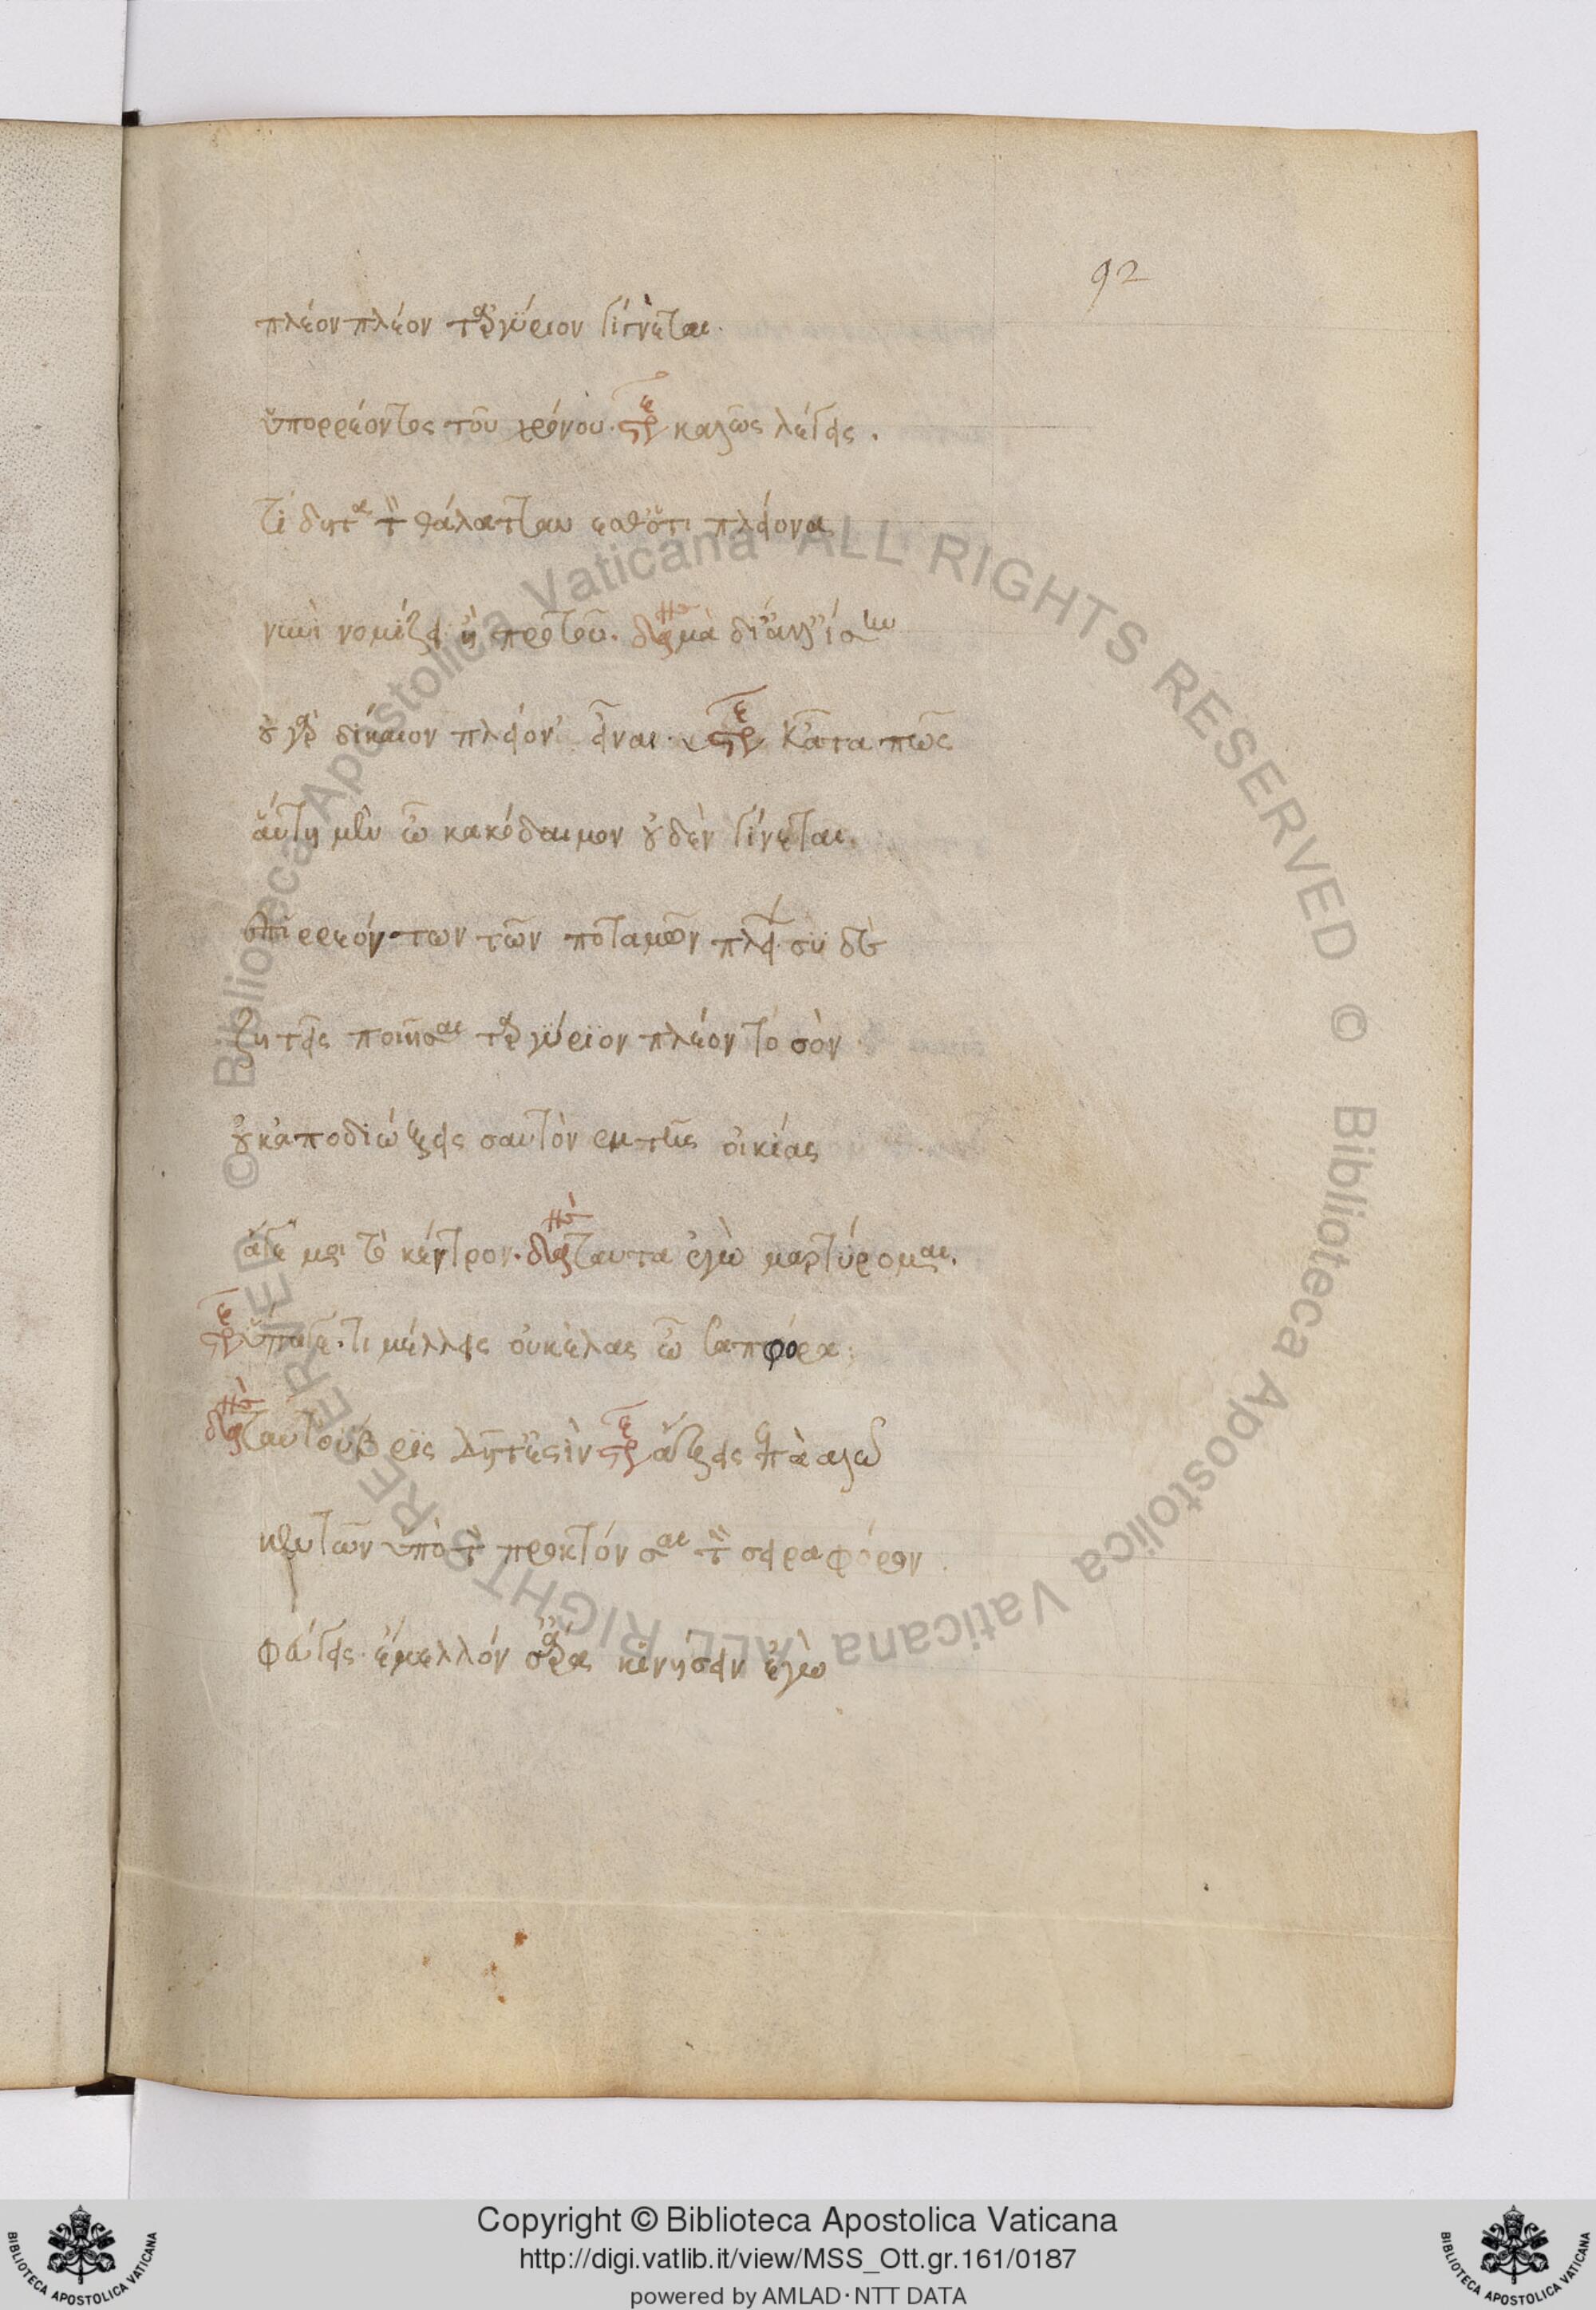 92
πλέον πλέον τἀργύριον γίγνεται.
ὑπορρέοντος τοῦ χρόνου. στρε καλῶς λέγεις.
τί δῆτα τὴν θάλατταν ἐσθ' ὅτι πλείονα
νυνὶ νομίζει ἢ προτοῦ. δανει μὰ δί' ἀλλ' ἴσην
οὐ γὰρ δίκαιον πλείον' εἶναι. στρε κᾆτα πῶς
αὕτη μὲν ὦ κακόδαιμον οὐδὲν γίνεται
ἐπιρρεόντων τῶν ποταμῶν πλεί. σὺ δὲ
ζητεῖς ποιῆσαι τἀργύριον πλέον τὸ σὸν
οὐκ ἀποδιώξεις σαυτὸν ἐκ τῆς οἰκίας
ἄγε μοι τὸ κέντρον. ταῦτα ἐγὼ μαρτύρομαι.
στρε ὕπαγε. τί μέλλεις οὐκ ἐλᾷς ὦ σαπφόρα;
ταῦτ' οὐχ ὕβρις δῆτ' ἐστὶν στρε ἄξεις ἐπιαλῶ
κεντῶν ὑπὸ τὸν πρωκτόν σαι τὸν σειραφόρον
φεύγεις. ἔμελλόν σ' ἄρα κινήσειν ἐγὼ
© Biblioteca Apostolica Vaticana ALL RIGHTS RESERVED © Biblioteca Apostolica Vaticana ALL RIGHTS RESERVED
Copyright © Biblioteca Apostolica Vaticana
http://digi.vatlib.it/view/MSS_Ott.gr.161/0187
powered by AMLAD·NTT DATA
BIBLIOTECA APOSTOLICA VATICANA
BIBLIOTECA APOSTOLICA VATICANA